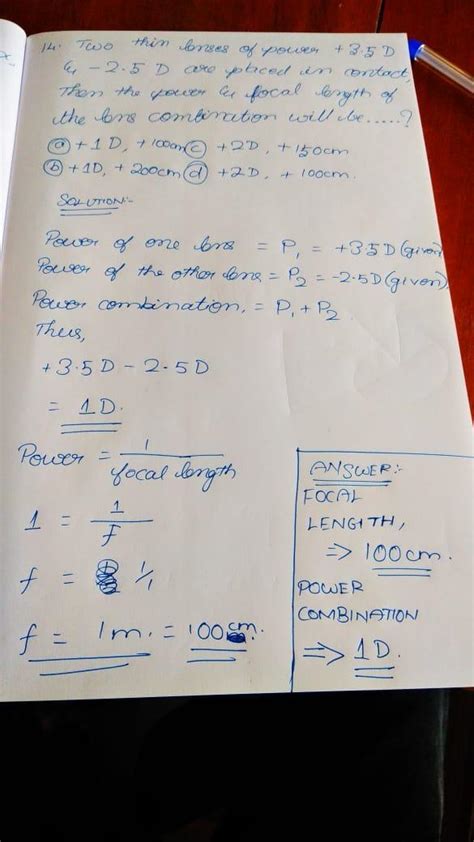 14. Two thin lenses of power +3.5 D
& -2.5 D are placed in contact,
Then the power & focal length of
the lens combination will be.....?
(a) +1D, +100cm (c) +2D, +150cm
(b) +1D, +200cm (d) +2D, +100cm.
SOLUTION:-
Power of one lens = P₁ = +3.5D (given)
Power of the other lens = P₂ = -2.5D (given)
Power combination, = P₁ + P₂
Thus,
+3.5D - 2.5D
= 1D.
Power = 1/focal length
1 = 1/f
f = 1/1
f = 1m. = 100cm.
ANSWER:-
FOCAL
LENGTH,
⇒ 100cm.
POWER
COMBINATION
⇒ 1D.